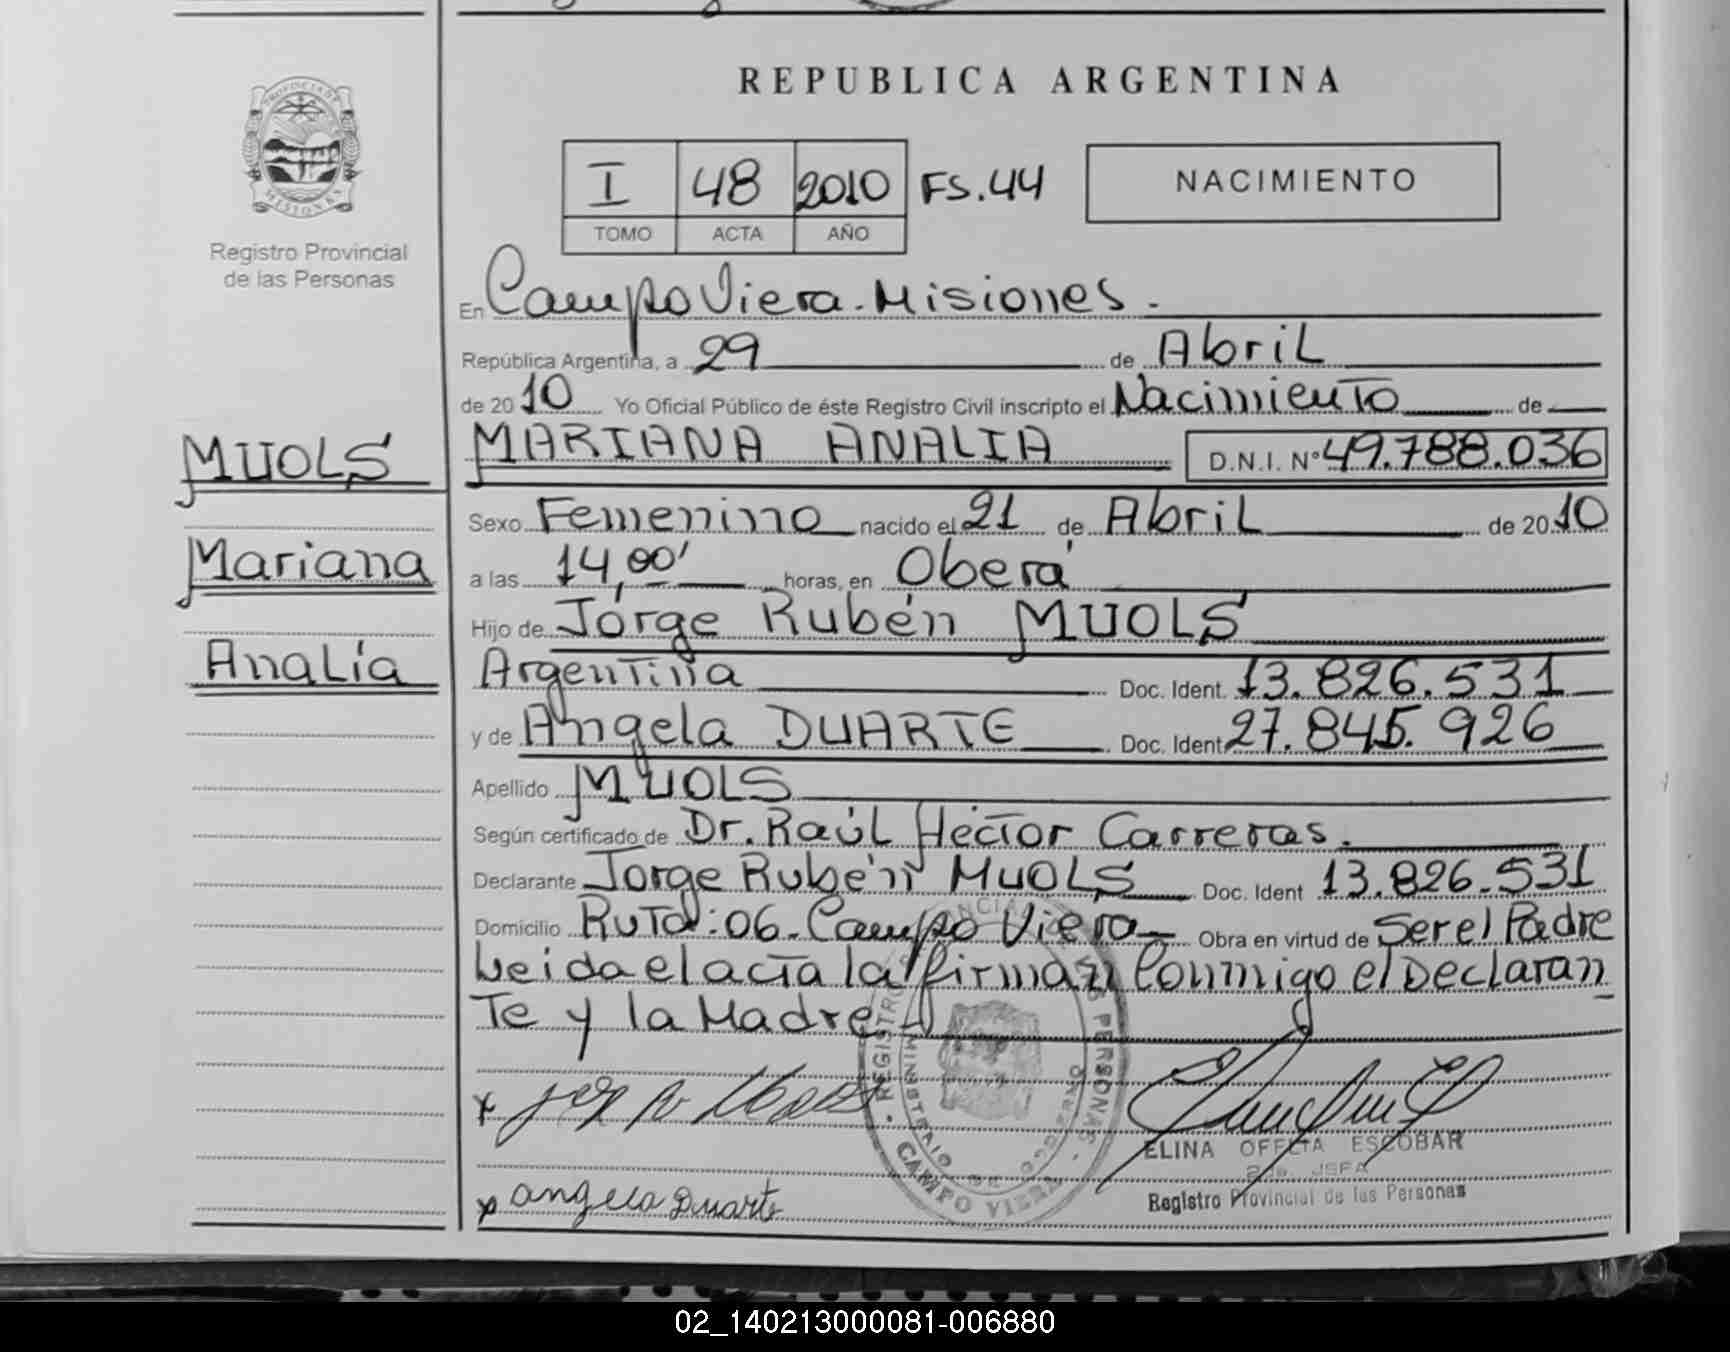 REPUBLICA ARGENTINA
PROVINCIA DE
MISIONES
Registro Provincial
de las Personas
I 48 2010 FS.44
TOMO ACTA AÑO
NACIMIENTO
En Campo Viera. Misiones.
República Argentina, a 29 de Abril
de 2010 Yo Oficial Público de éste Registro Civil inscripto el Nacimiento de
MUOLS
Mariana
Analía
MARIANA ANALIA D.N.I. Nº 49.788.036
Sexo Femenino nacido el 21 de Abril de 2010
a las 14,00' horas, en Oberá
Hijo de Jórge Rubén MUOLS
Argentina Doc. Ident. 13.826.531
y de Angela DUARTE Doc. Ident 27.845.926
Apellido MUOLS
Según certificado de Dr. Raúl Héctor Carreras.
Declarante Jorge Rubén MUOLS Doc. Ident 13.826.531
Domicilio Ruta: 06. Campo Viera Obra en virtud de Ser el Padre
Leida el acta la firman Conmigo el Declaran
Te y la Madre
angela Duarte
REGISTRO PERSONAS
CAMPO VIERA
ELINA OFELIA ESCOBAR
JEFA
Registro Provincial de las Personas
02_140213000081-006880